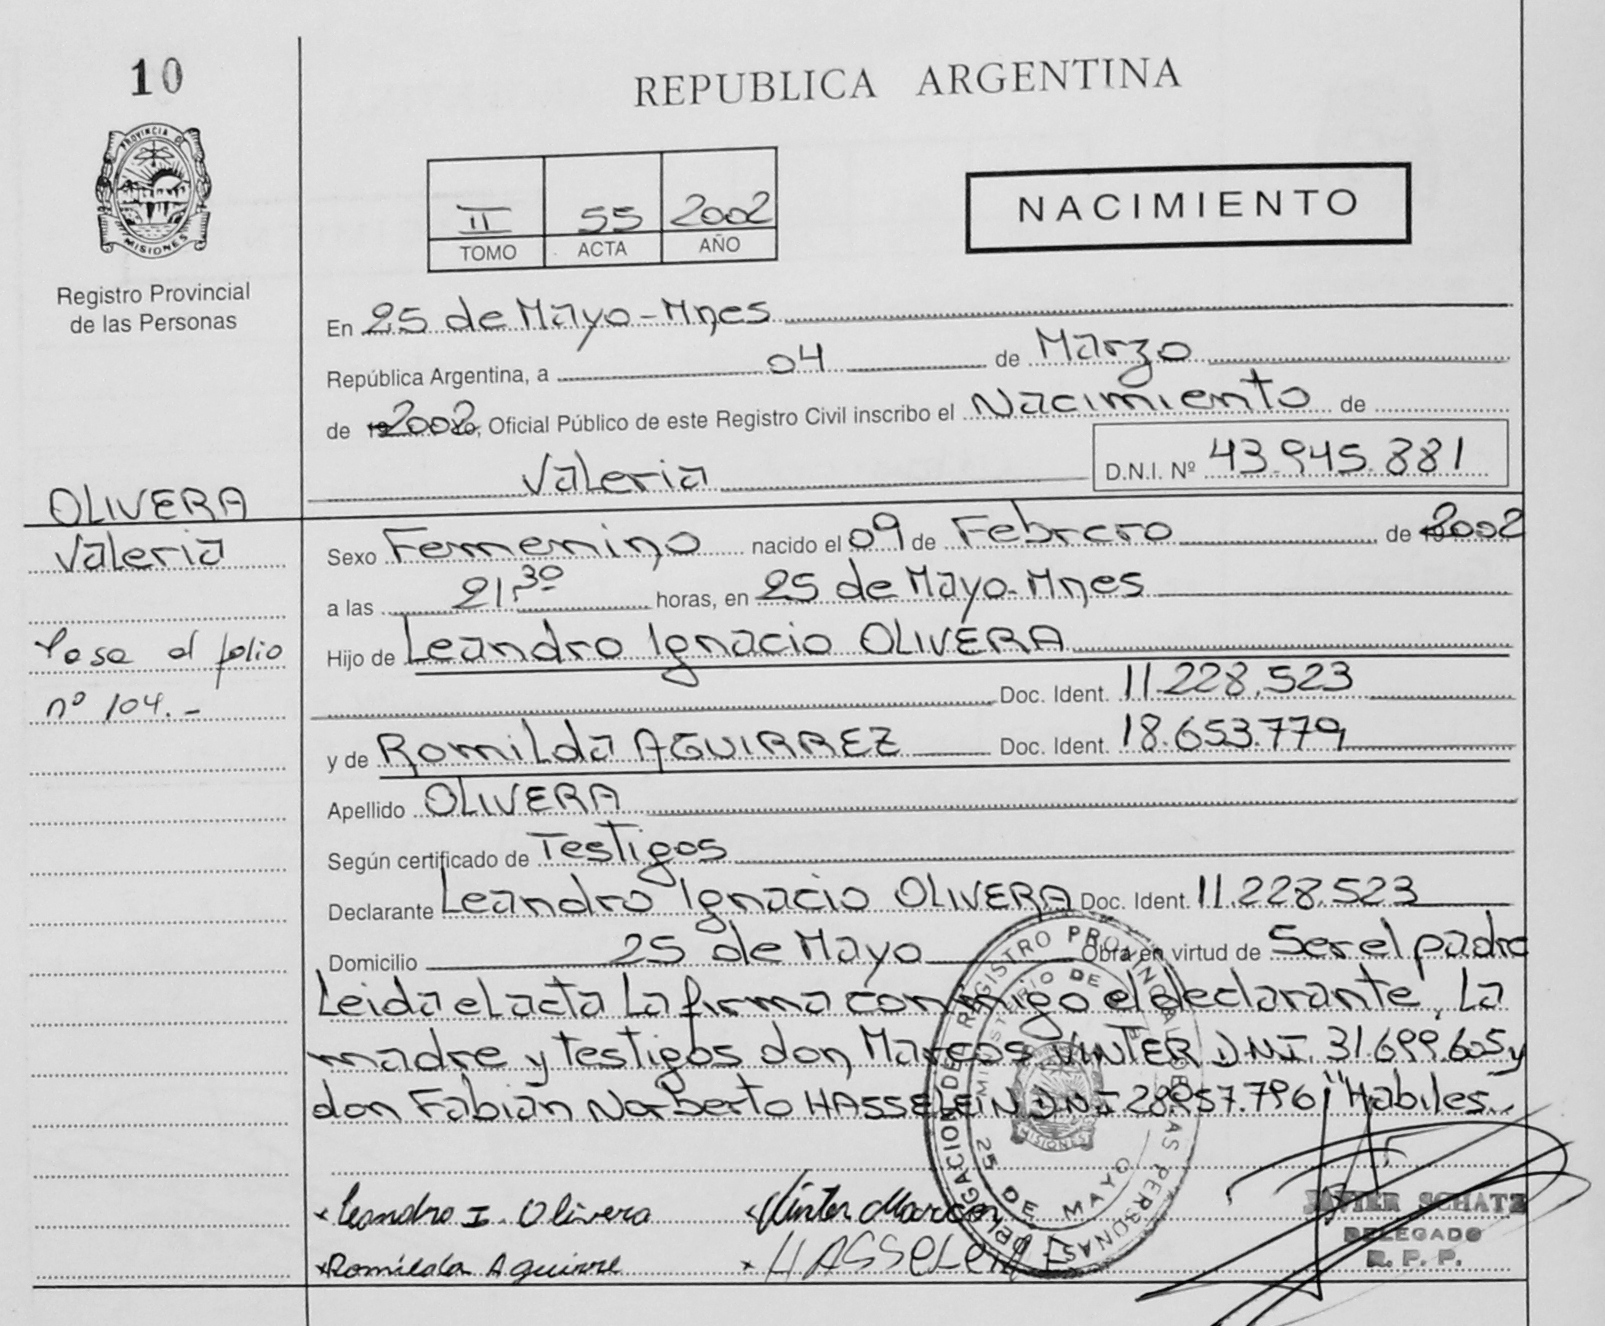 10
REPUBLICA ARGENTINA
PROVINCIA DE
MISIONES
Registro Provincial
de las Personas
II 55 2002
TOMO ACTA AÑO
NACIMIENTO
En 25 de Mayo-Mnes
República Argentina, a 04 de Marzo
de 2002, Oficial Público de este Registro Civil inscribo el Nacimiento de
Valeria D.N.I. Nº 43.945.881
OLIVERA
Valeria
Pasa al folio
nº 104.-
Sexo Femenino nacido el 09 de Febrero de 2002
a las 21,30 horas, en 25 de Mayo-Mnes
Hijo de Leandro Ignacio OLIVERA
Doc. Ident. 11.228.523
y de Romilda AGUIRREZ Doc. Ident. 18.653.779
Apellido OLIVERA
Según certificado de Testigos
Declarante Leandro Ignacio OLIVERA Doc. Ident. 11.228.523
Domicilio 25 de Mayo Obra en virtud de Ser el padre
Leida el acta La firma conmigo el declarante, La
madre y testigos don Marcos VINTER D.N.I. 31.699.605 y
don Fabián Norberto HASSELEIN D.N.I 28.957.796 ¡"Habiles..
DELEGACION DE REGISTRO PROVINCIAL DE LAS PERSONAS
MINISTERIO DE
MISIONES
25 DE MAYO
x Leandro I. Olivera x Vinter Marcos
x Romilda Aguirre x HASSELEIN F
JAVIER SCHATZ
DELEGADO
R. P. P.